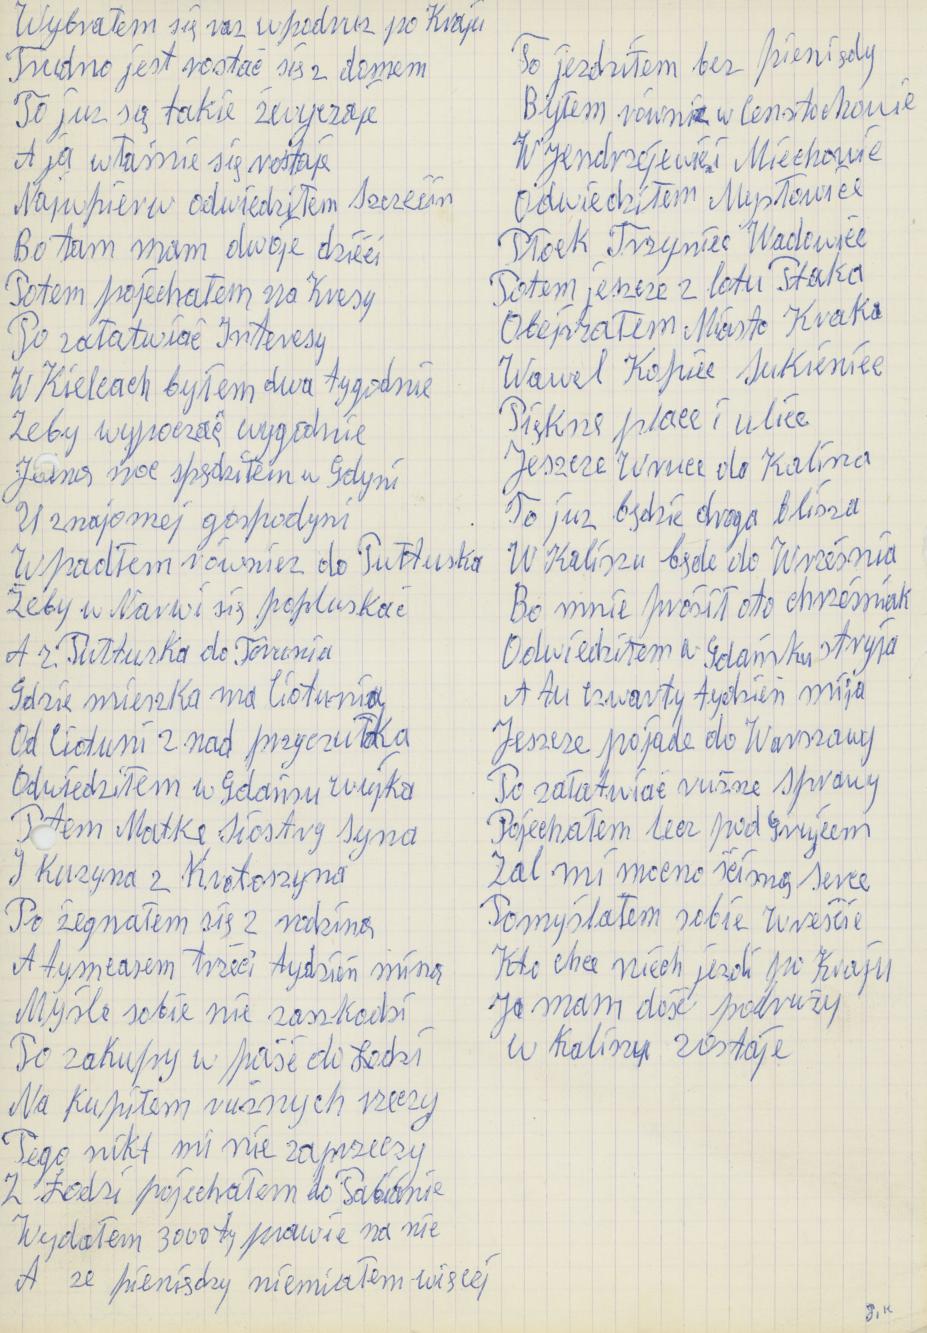 Wybrałem się raz w podruz po Kraju
Trudno jest rostać się z domem
To juz są takie zwyczaje
A ja właśnie się rostaje
Najwpierw odwiedziłem Szczecin
Bo tam mam dwoje dzieci
Potem pojechałem na Kresy
Po załatwiać Interesy
W Kielcach byłem dwa tygodnie
Żeby wypocząć wygodnie
Jedną noc spędziłem w Gdyni
U znajomej gospodyni
Wpadłem rownież do Pułtuska
Żeby w Narwi się popluskać
A z Pułtuska do Torunia
Gdzie mieszka ma Ciotunia
Od Ciotuni z nad przyczułka
Odwiedziłem w Gdańsu wujka
Potem Matkę Siostry Syna
I Kuzyna z Krotoszyna
Po żegnałem się z rodziną
A tymczasem trzeci tydzień miną
Myśle sobie nie zaszkodzi
Po zakupy w paść do Łodzi
Na kupiłem rużnych rzeczy
Tego nikt mi nie zaprzeczy
Z Łodzi pojechałem do Pabianic
Wydałem 3000 ty prawie na nic
A ze pieniędzy niemiałem więcej
To jezdziłem bez pieniędy
Byłem równiz w Censtochowie
W Jendrzejewi i Miechowie
Odwiedziłem Mysłowice
Płock Trzyniec Wadowice
Potem jeszcze z lotu Ptaka
Obejrzałem Miasto Kraka
Wawel Kopiec Sukienice
Piękne place i ulice
Jeszcze Wruce do Kalisza
To juz będzie droga blisza
W Kaliszu będe do Września
Bo mnie prosił oto chrześniak
Odwiedziłem w Gdańsku stryja
A tu czwarty tydzień mija
Jeszcze pojade do Warszawy
Po załatwiać rużne sprawy
Pojechałem lecz pod Grujcem
Zal mi mocno ścisną serce
Pomyślałem sobie wreście
Kto chce niech jezdi po Kraju
Ja mam dość podruży
w Kaliszu zostaje
J.K